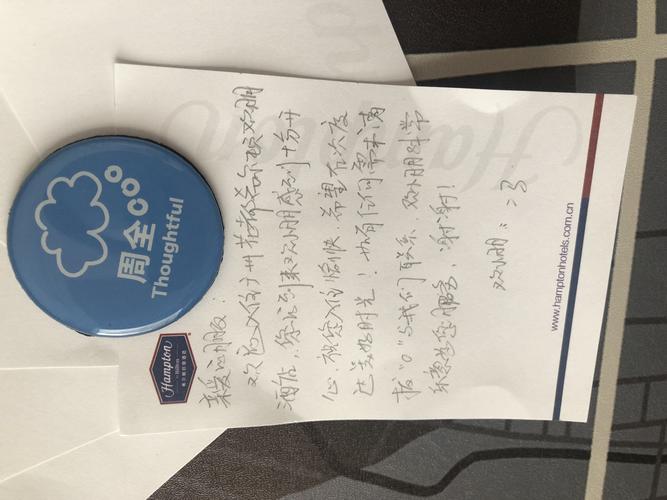 周全
Thoughtful
Hampton
by Hilton
亲爱的朋友：
欢迎入住广州花都希尔顿欢朋
酒店，您的到来欢小朋感到十分开
心，祝您入住愉快，希望在次度
过美好时光！如有任何需求请
拨"0"与我们联系，欢小朋非常
乐意为您服务，谢谢！
欢小朋：
www.hamptonhotels.com.cn
Hampton